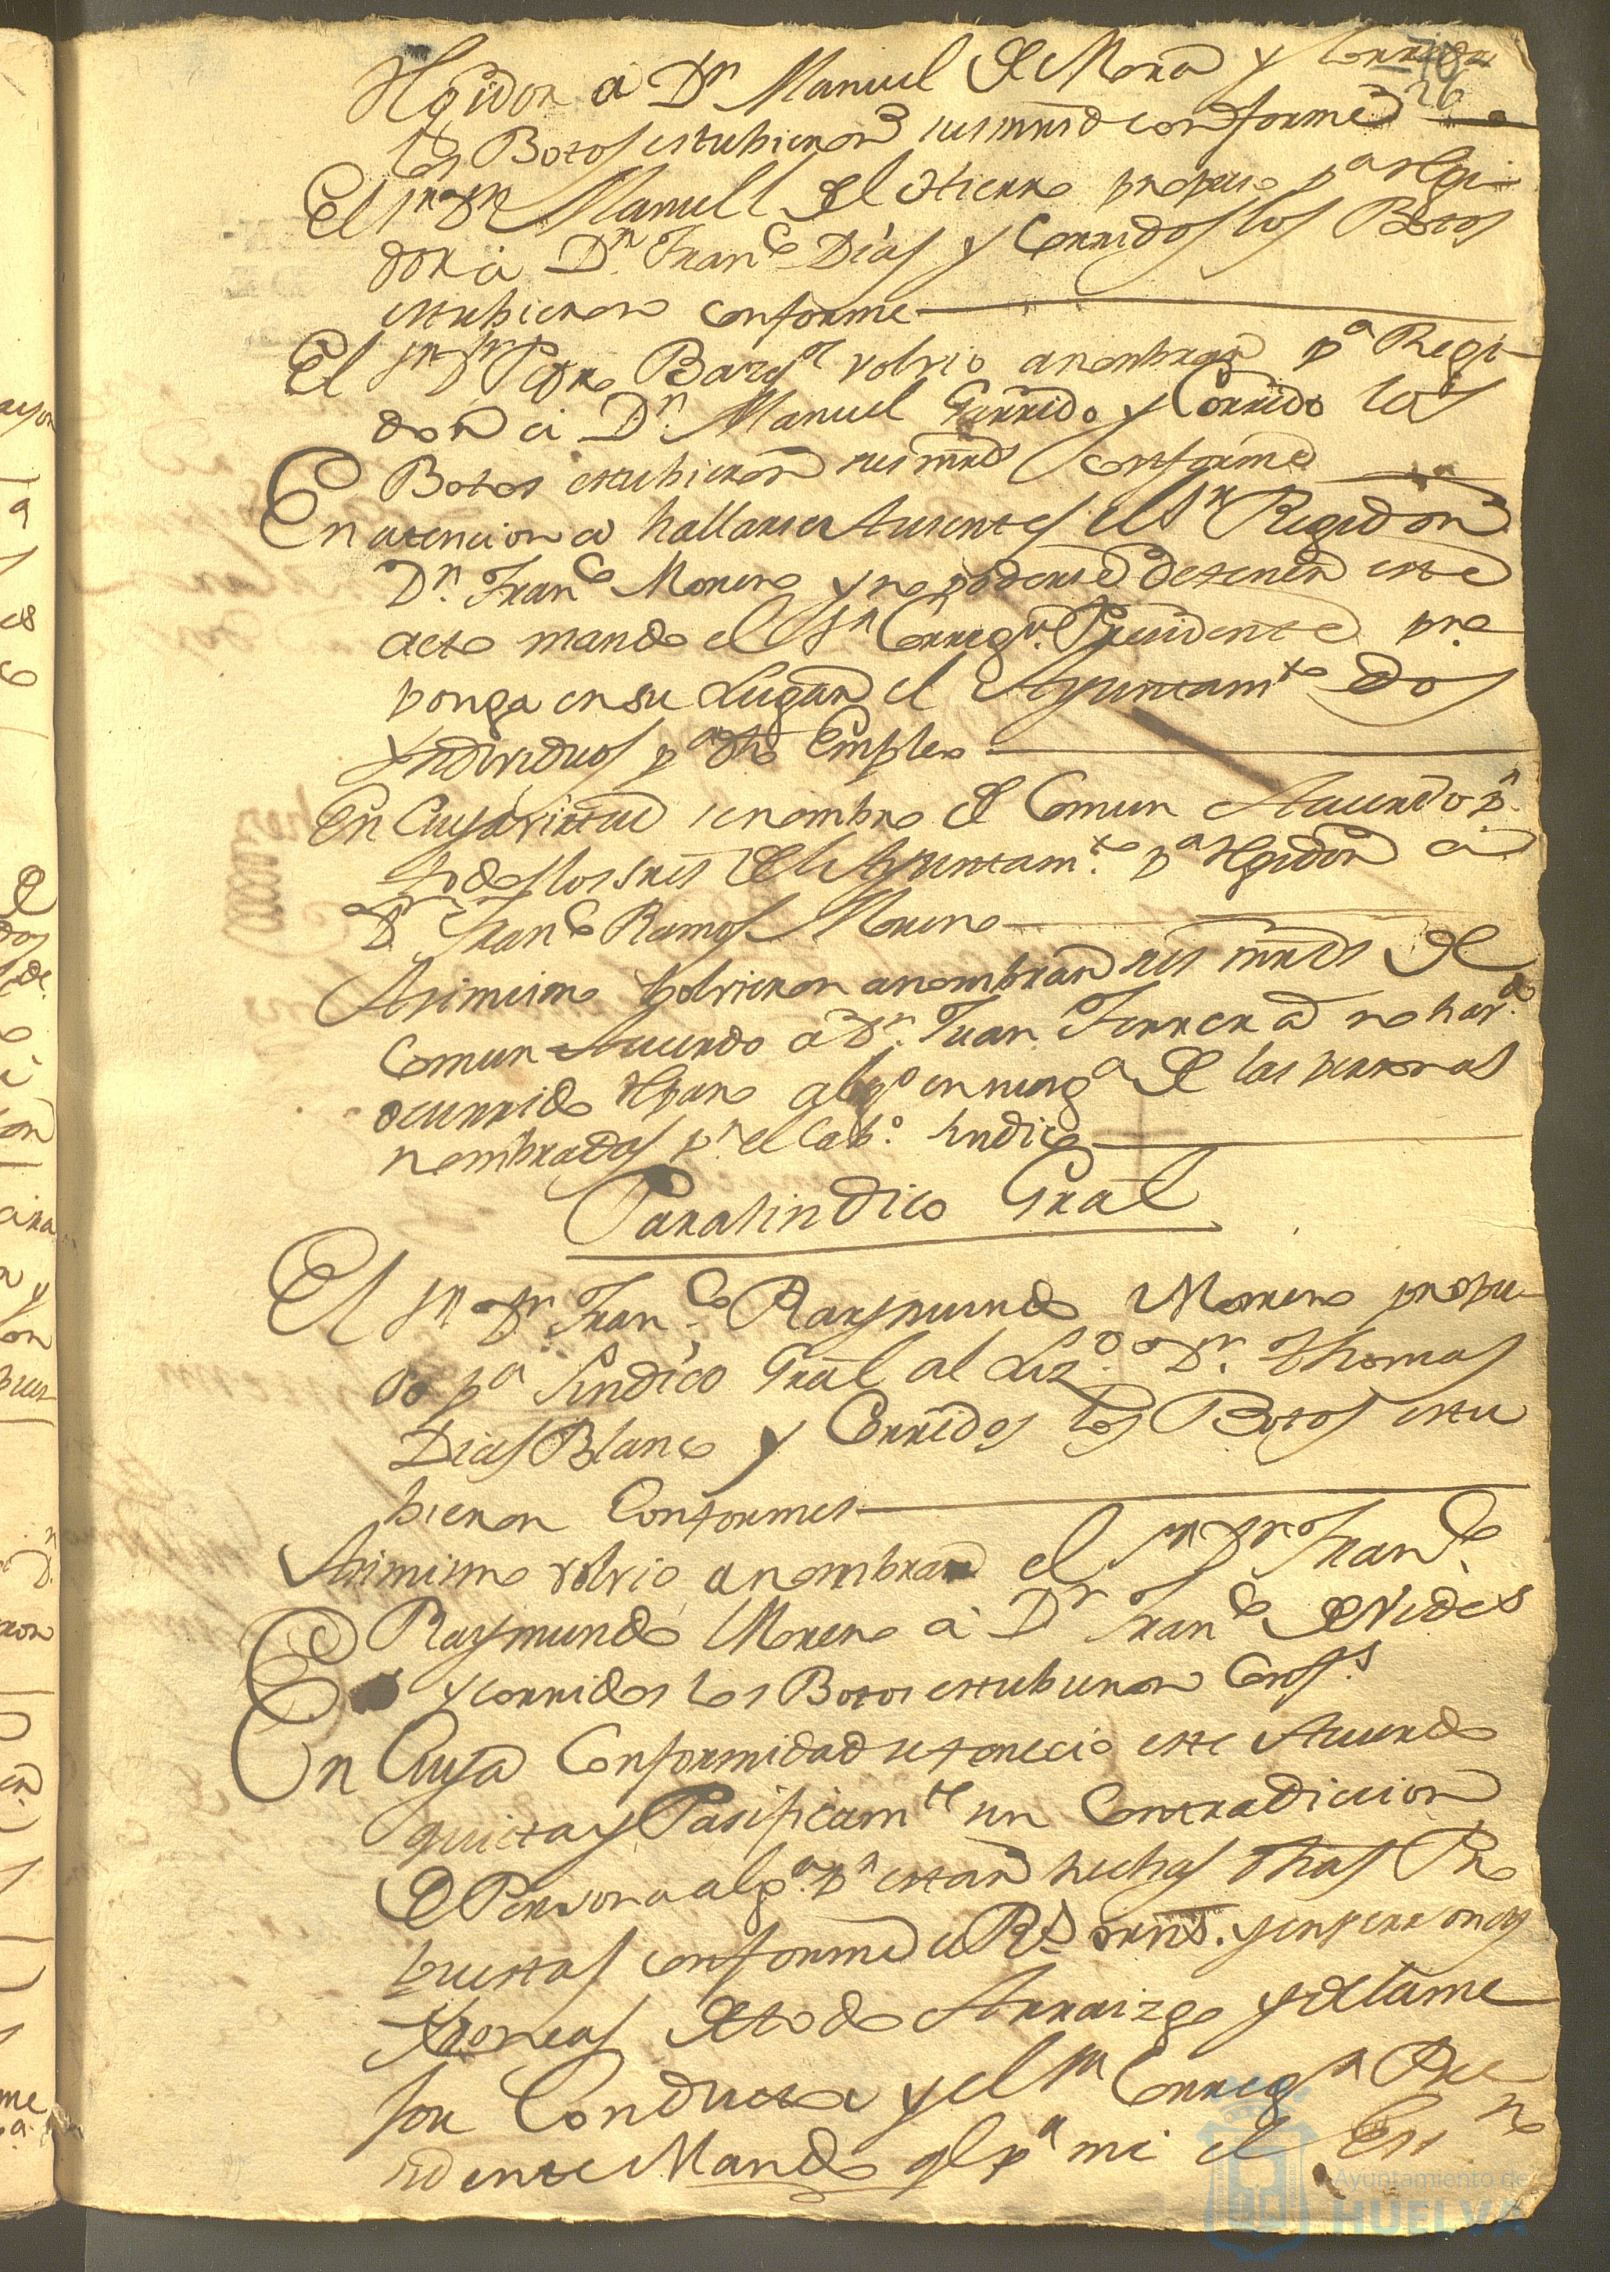 Rgidor a Dn Manuel de Mora y Corridos
los Botos estubieron sus mrds conforme
El Sr Dn Manuel del Hierro propuso pa Rgi-
dor à Dn. Franco Dias y Corridos los Botos
estubieron conforme
El Sr Dn Pedro volvio a nombrar pa Regi-
dor à Dn. Manuel Garrido y Corrido los
Botos estubieron sus mrds conforme
En atencion a hallarse Ausente el Sr Regidor
Dn. Franco Moreno y no poderse detener este
acto mando el Sr Corregr. Presidente pro
ponga en su Lugar el Ayuntamto dos
Yndividuos pa dho Empleo
En Cuya virtud se nombro de Comun Acuerdo pr.
todos los sres del Ayuntamto. pa Rgidor à
Dn Franco Ramos Moreno
Asimismo bolvieron a nombrar sus mrds de
Comun Acuerdo à Dn. Juan Ferrera no havdo.
ocurrido Rparo algo en ninga de las personas
nombradas pr. el Cabo. Sindico
Para Sindico Gral
El Sr Dn Franco Raymundo Moreno propu-
so pa Sindico Gral al Lizdo. Dn. Thomas
Dias Blanco y Corridos los Botos estu
bieron Conformes
Asimismo volvio a nombrar el Sr Dn Franco.
Raymundo Moreno à Dn Franco de Vides
y corridos los Botos estubieron Confs.
En Cuya Conformidad se fenecio este Acuerdo
quieta y Pasificamte sin Contradiccion
de Persona alga. pr estar hechas dhas Pro
puestas conforme a Rs. orns. y en personas
Ydoneas de todo Arraizgo y de la me
jor Conducta y el Sr Corregr Pre
sidente Mando q pr mi el Essno
26
Ayuntamiento de
HUELVA